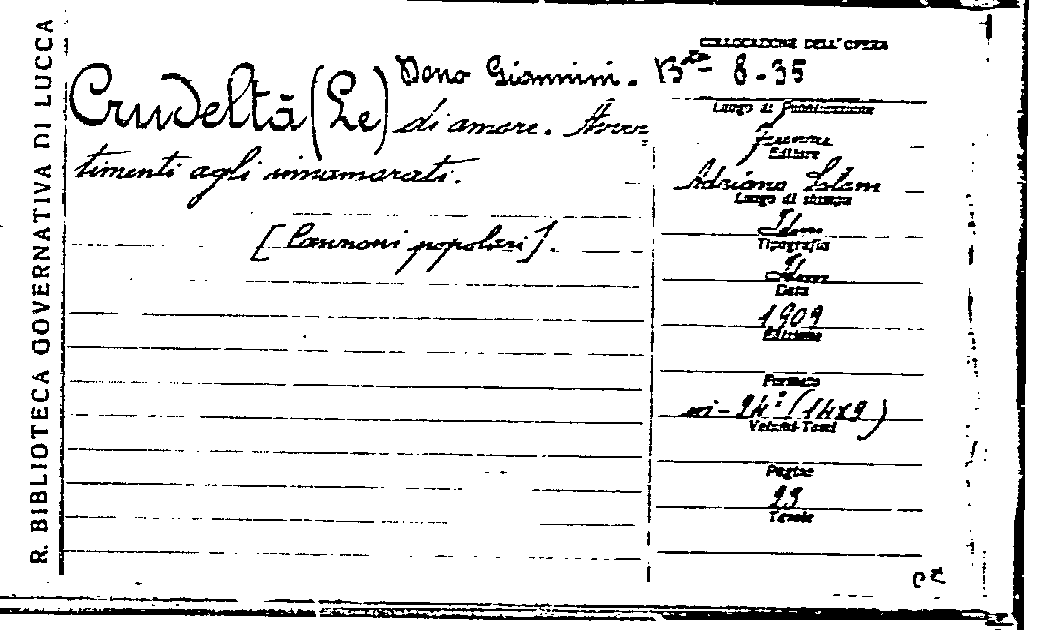 R. BIBLIOTECA GOVERNATIVA DI LUCCA
COLLOCAZIONE DELL'OPERA
Dono Giannini. B.ta - 8.35
Crudeltà (Le) di amore. Avver
timenti agli innamorati.
[Canzoni popolari].
Luogo di Pubblicazione
Firenze
Editore
Adriano Salani
Luogo di stampa
Idem
Tipografia
Idem
Data
1909
Edizione
Formato
in-24° (14x9)
Volumi-Tomi
Pagine
23
Tavole